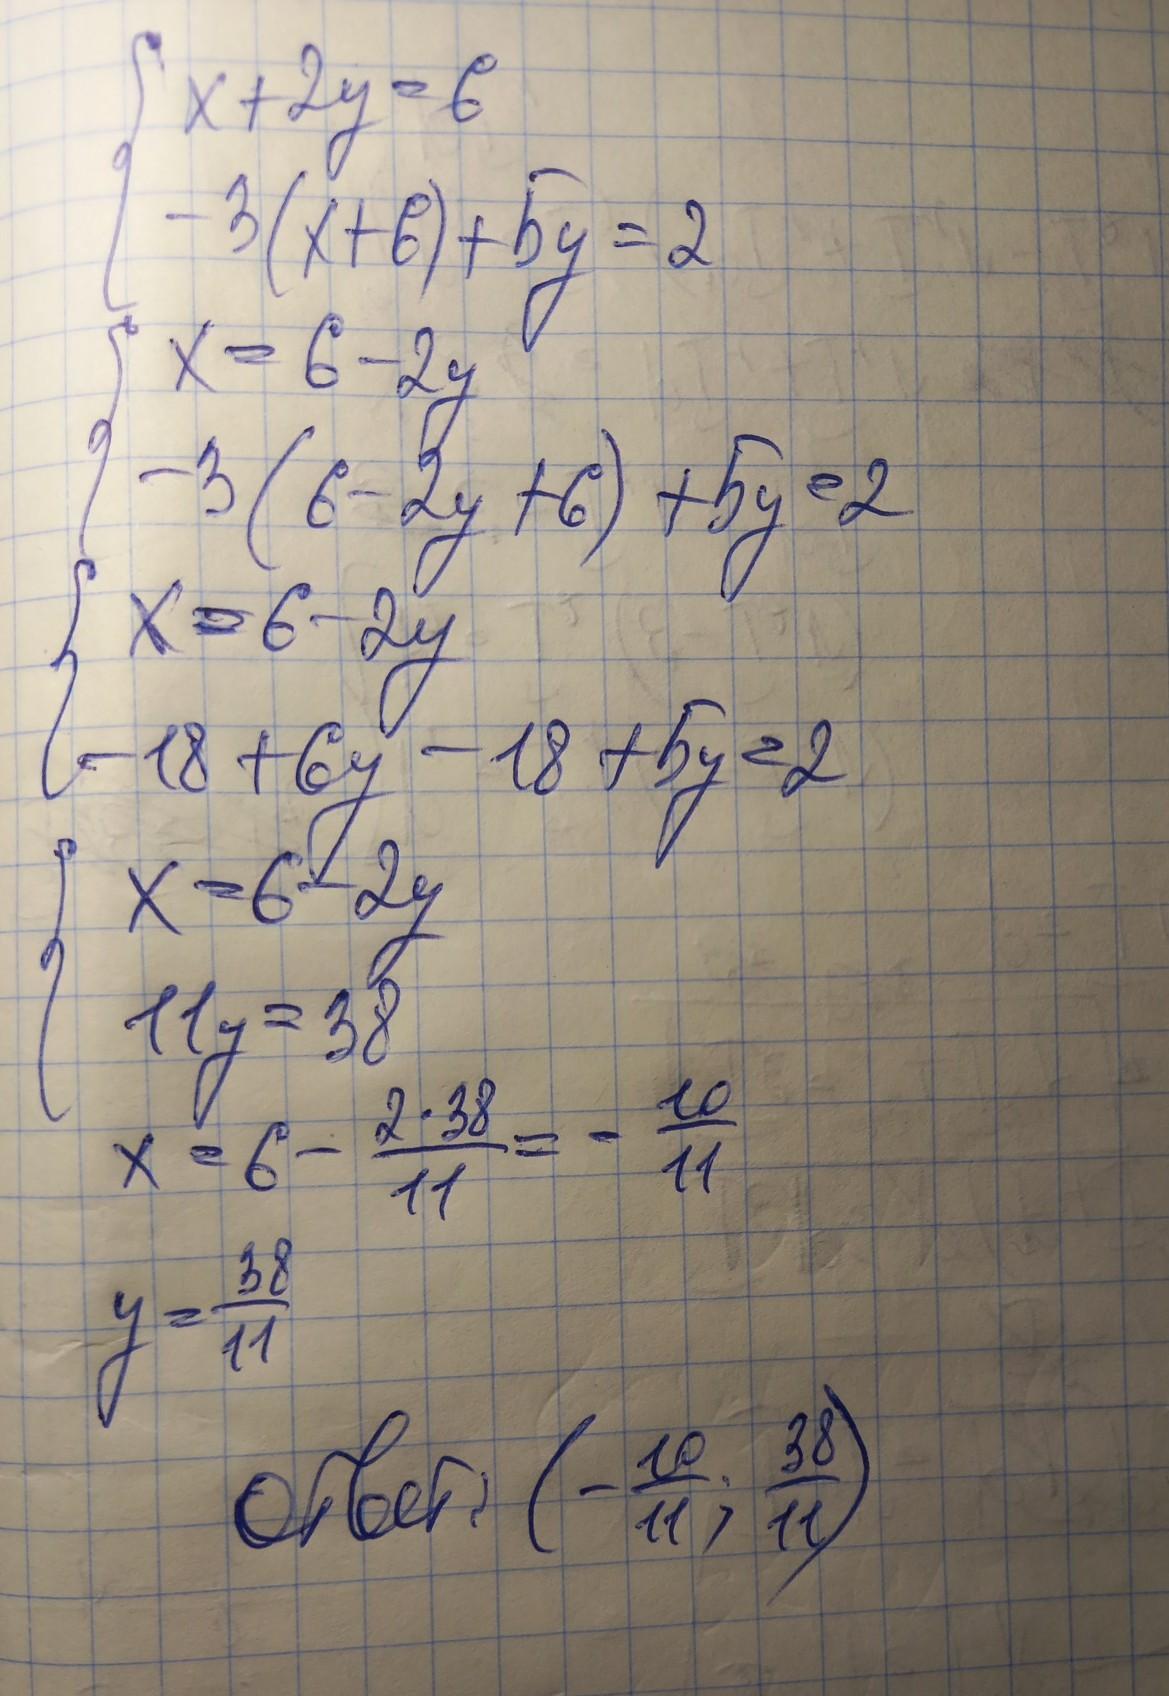 x+2y=6
-3(x+6)+5y=2
x=6-2y
-3(6-2y+6)+5y=2
x=6-2y
-18+6y-18+5y=2
x=6-2y
11y=38
x=6-\frac{2·38}{11}=-\frac{10}{11}
y=\frac{38}{11}
Ответ: (-\frac{10}{11}; \frac{38}{11})